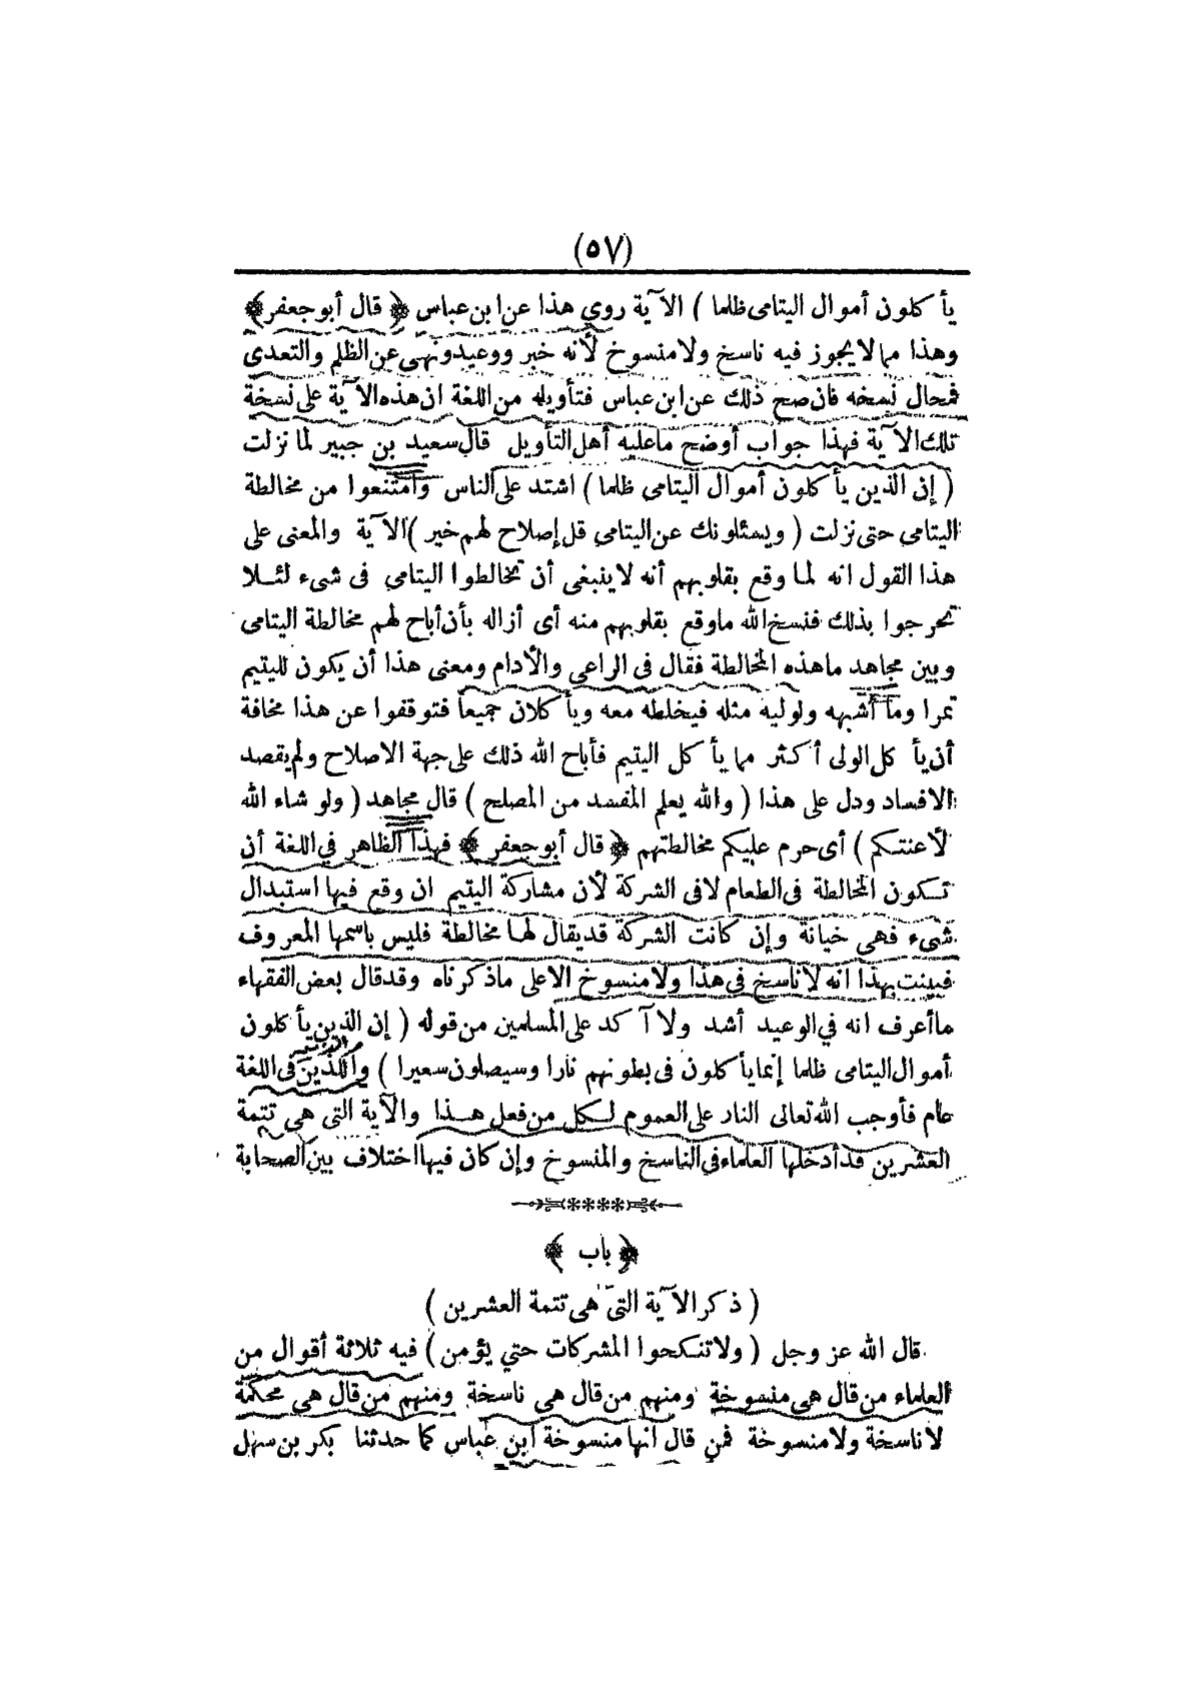 (٥٧)
يأكلون أموال اليتامى ظلما ) الآية روي هذا عن ابن عباس ﴿ قال أبو جعفر ﴾
وهذا مما لايجوز فيه ناسخ ولا منسوخ لأنه خبر ووعيد ونهى عن الظلم والتعدى
فمحال نسخه فان صح ذلك عن ابن عباس فتأويله من اللغة ان هذه الآية على نسخة
تلك الآية فهذا جواب أوضح ما عليه أهل التأويل قال سعيد بن جبير لما نزلت
( إن الذين يأكلون أموال اليتامى ظلما ) اشتد على الناس وامتنعوا من مخالطة
اليتامى حتى نزلت ( ويسئلونك عن اليتامي قل إصلاح لهم خير ) الآية والمعنى على
هذا القول انه لما وقع بقلوبهم أنه لا ينبغى أن تخالطوا اليتامي فى شىء لئلا
تحرجوا بذلك فنسخ الله ماوقع بقلوبهم منه أى أزاله بأن أباح لهم مخالطة اليتامى
وبين مجاهد ماهذه المخالطة فقال فى الراعي والأدام ومعنى هذا أن يكون لليتيم
تمرا وما أشبهه ولوليه مثله فيخلطه معه ويأكلان جميعا فتوقفوا عن هذا مخافة
أن يأكل الولى أكثر مما يأكل اليتيم فأباح الله ذلك على جهة الاصلاح ولم يقصد
الافساد ودل على هذا ( والله يعلم المفسد من المصلح ) قال مجاهد ( ولو شاء الله
لأعنتكم ) أى حرم عليكم مخالطتهم ﴿ قال أبو جعفر ﴾ فهذا الظاهر في اللغة أن
تكون المخالطة فى الطعام لا فى الشركة لأن مشاركة اليتيم ان وقع فيها استبدال
شىء فهى خيانة وإن كانت الشركة قد يقال لها مخالطة فليس باسمها المعروف
فبينت بهذا انه لا ناسخ في هذا ولا منسوخ الا على ماذكرناه وقد قال بعض الفقهاء
ما أعرف انه في الوعيد أشد ولا آكد على المسلمين من قوله ( إن الذين يأكلون
أموال اليتامى ظلما إنما يأكلون فى بطونهم نارا وسيصلون سعيرا ) والذين فى اللغة
عام فأوجب الله تعالى النار على العموم لكل من فعل هذا والآية التى هى تتمة
العشرين قد أدخلها العلماء في الناسخ والمنسوخ وإن كان فيها اختلاف بين الصحابة
﴿ باب ﴾
( ذكر الآية التى هى تتمة العشرين )
قال الله عز وجل ( ولا تنكحوا المشركات حتي يؤمن ) فيه ثلاثة أقوال من
العلماء من قال هى منسوخة ومنهم من قال هى ناسخة ومنهم من قال هى محكمة
لا ناسخة ولا منسوخة فمن قال انها منسوخة ابن عباس كما حدثنا بكر بن سهل